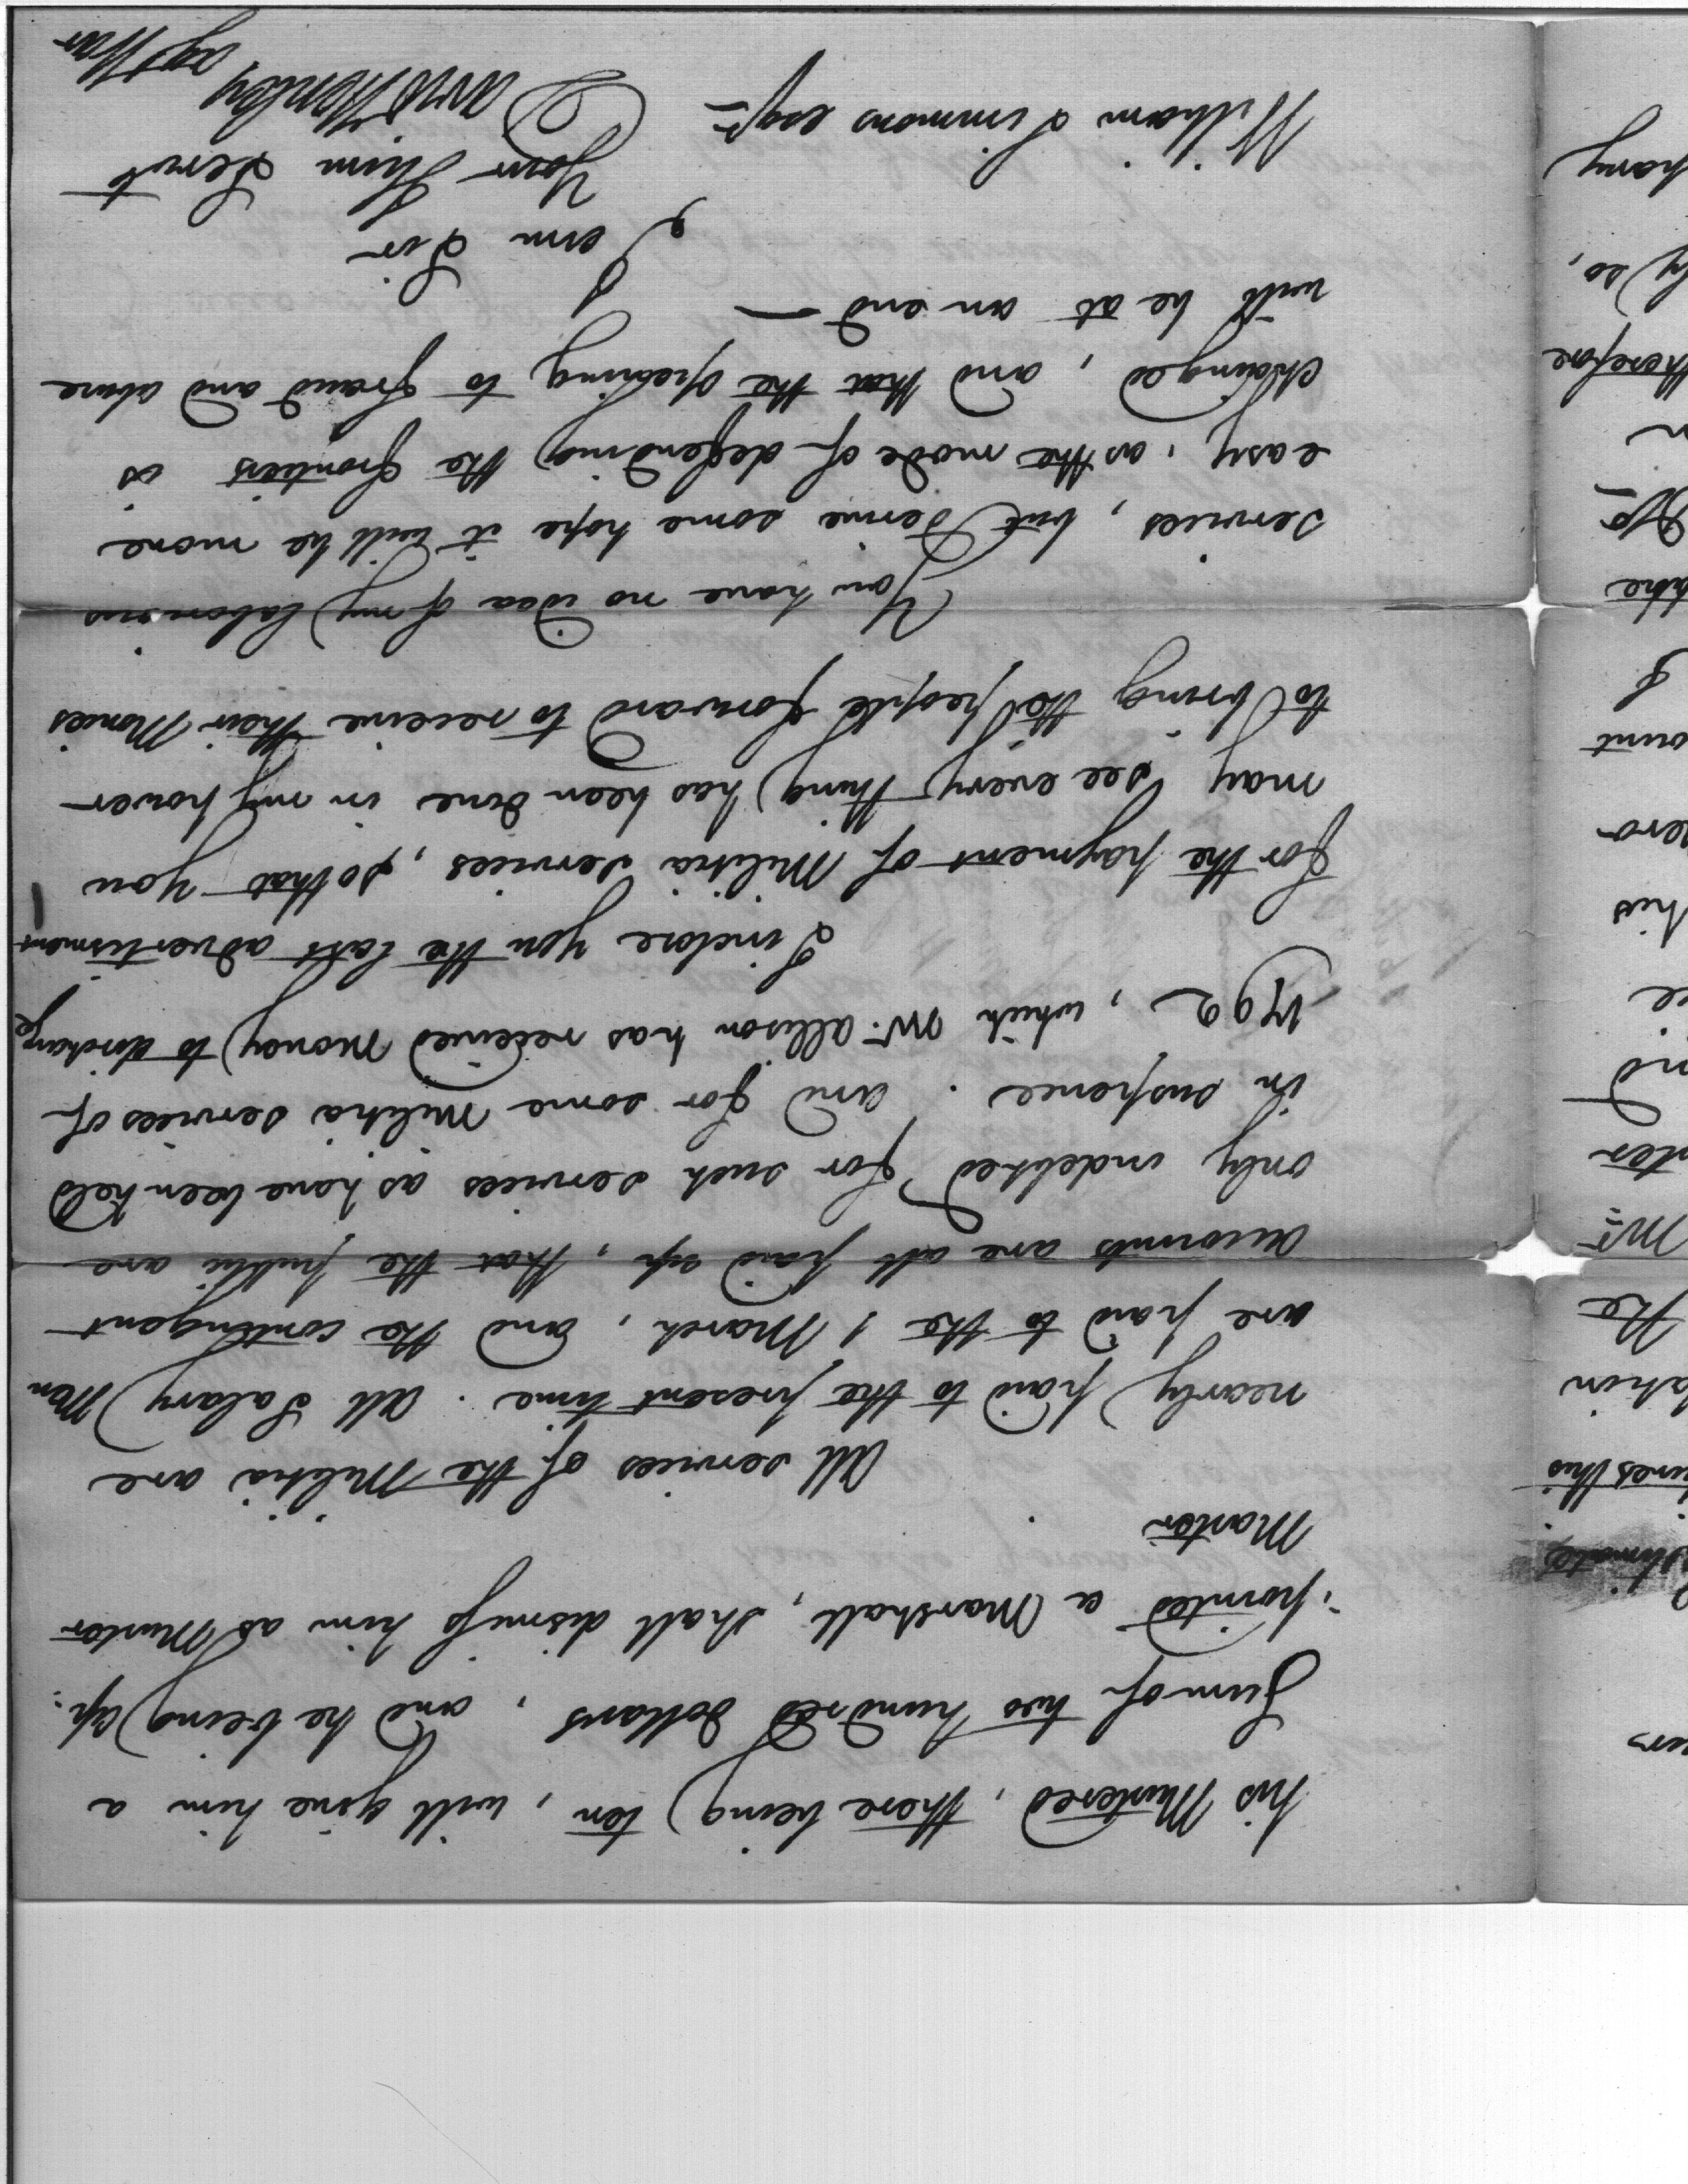 his Mustered, there being ten, will give him a
Sum of two hundred dollars, and he being ap:
:pointed a Marshall, shall dismiss him as Muster
Master
All services of the Militia are
nearly paid to the present time. All Salary Men
are paid to the 1 March, and the contingent
accounts are all paid up, that the public are
only indebted for such services as have been held
in suspence. and for some Militia services of
1792, which Mr. Allison has received Money to discharge
I inclose you the last advertisment
for the payment of Militia services, so that you
may see every thing has been done in my power
to bring the people forward to receive their Monies
You have no idea of my laborious
services, but derive some hope it will be more
easy, as the mode of defending the frontiers is
changed, and that the opening to fraud and abuse
will be at an end —
I am Sir
Your Hum Servt
William Simmons esqr
David Henley
agt War
this
the
Mr
his
therefore